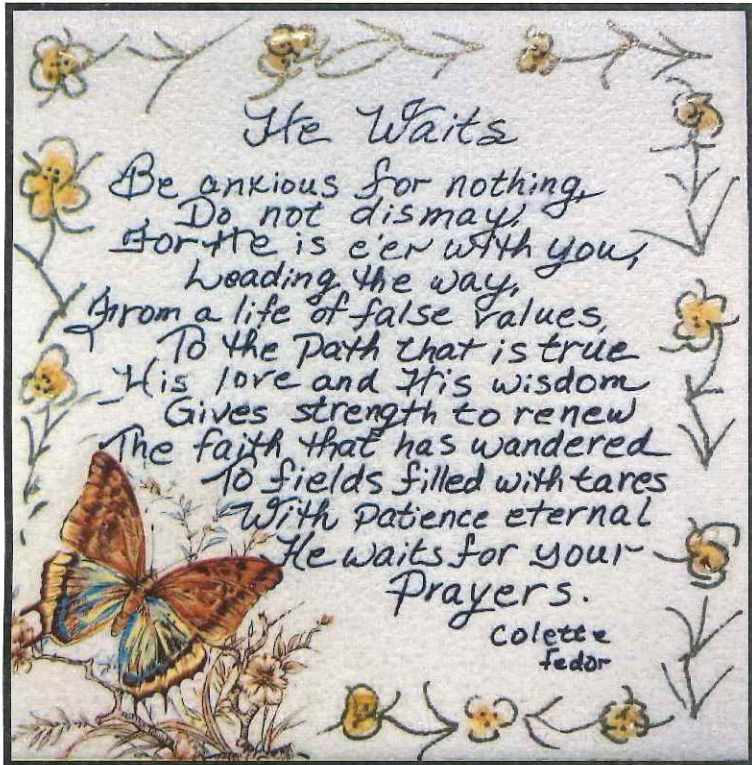 He Waits
Be anxious for nothing,
Do not dismay,
For He is e'er with you,
Leading the way,
From a life of false values,
To the path that is true
His love and His wisdom
Gives strength to renew
The faith that has wandered
To fields filled with tares
With patience eternal
He waits for your
Prayers.
Colette
Fedor